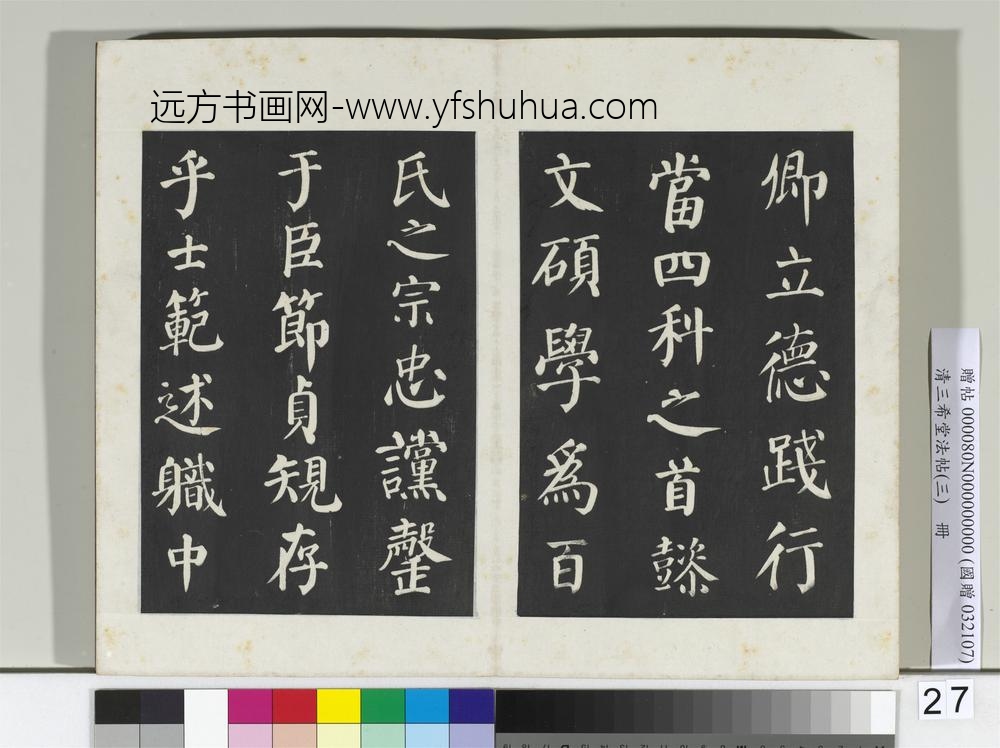 远方书画网-www.yfshuhua.com
卿立德踐行
當四科之首懿
文碩學爲百
氏之宗忠讜罄
于臣節貞䂓存
乎士範述軄中
贈帖 000080N000000000 (國贈 032107)
清三希堂法帖(三) 冊
27